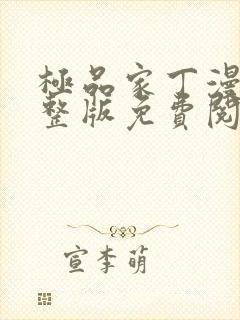 極品家丁漫
整版免費閱
宣李萌